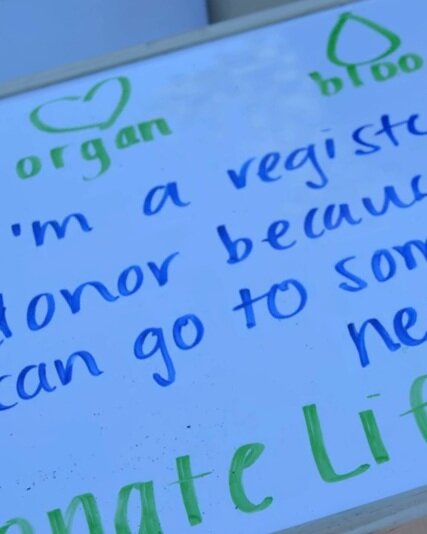 organ bloo
'm a registe
donor because
can go to som
ne
onate Lif